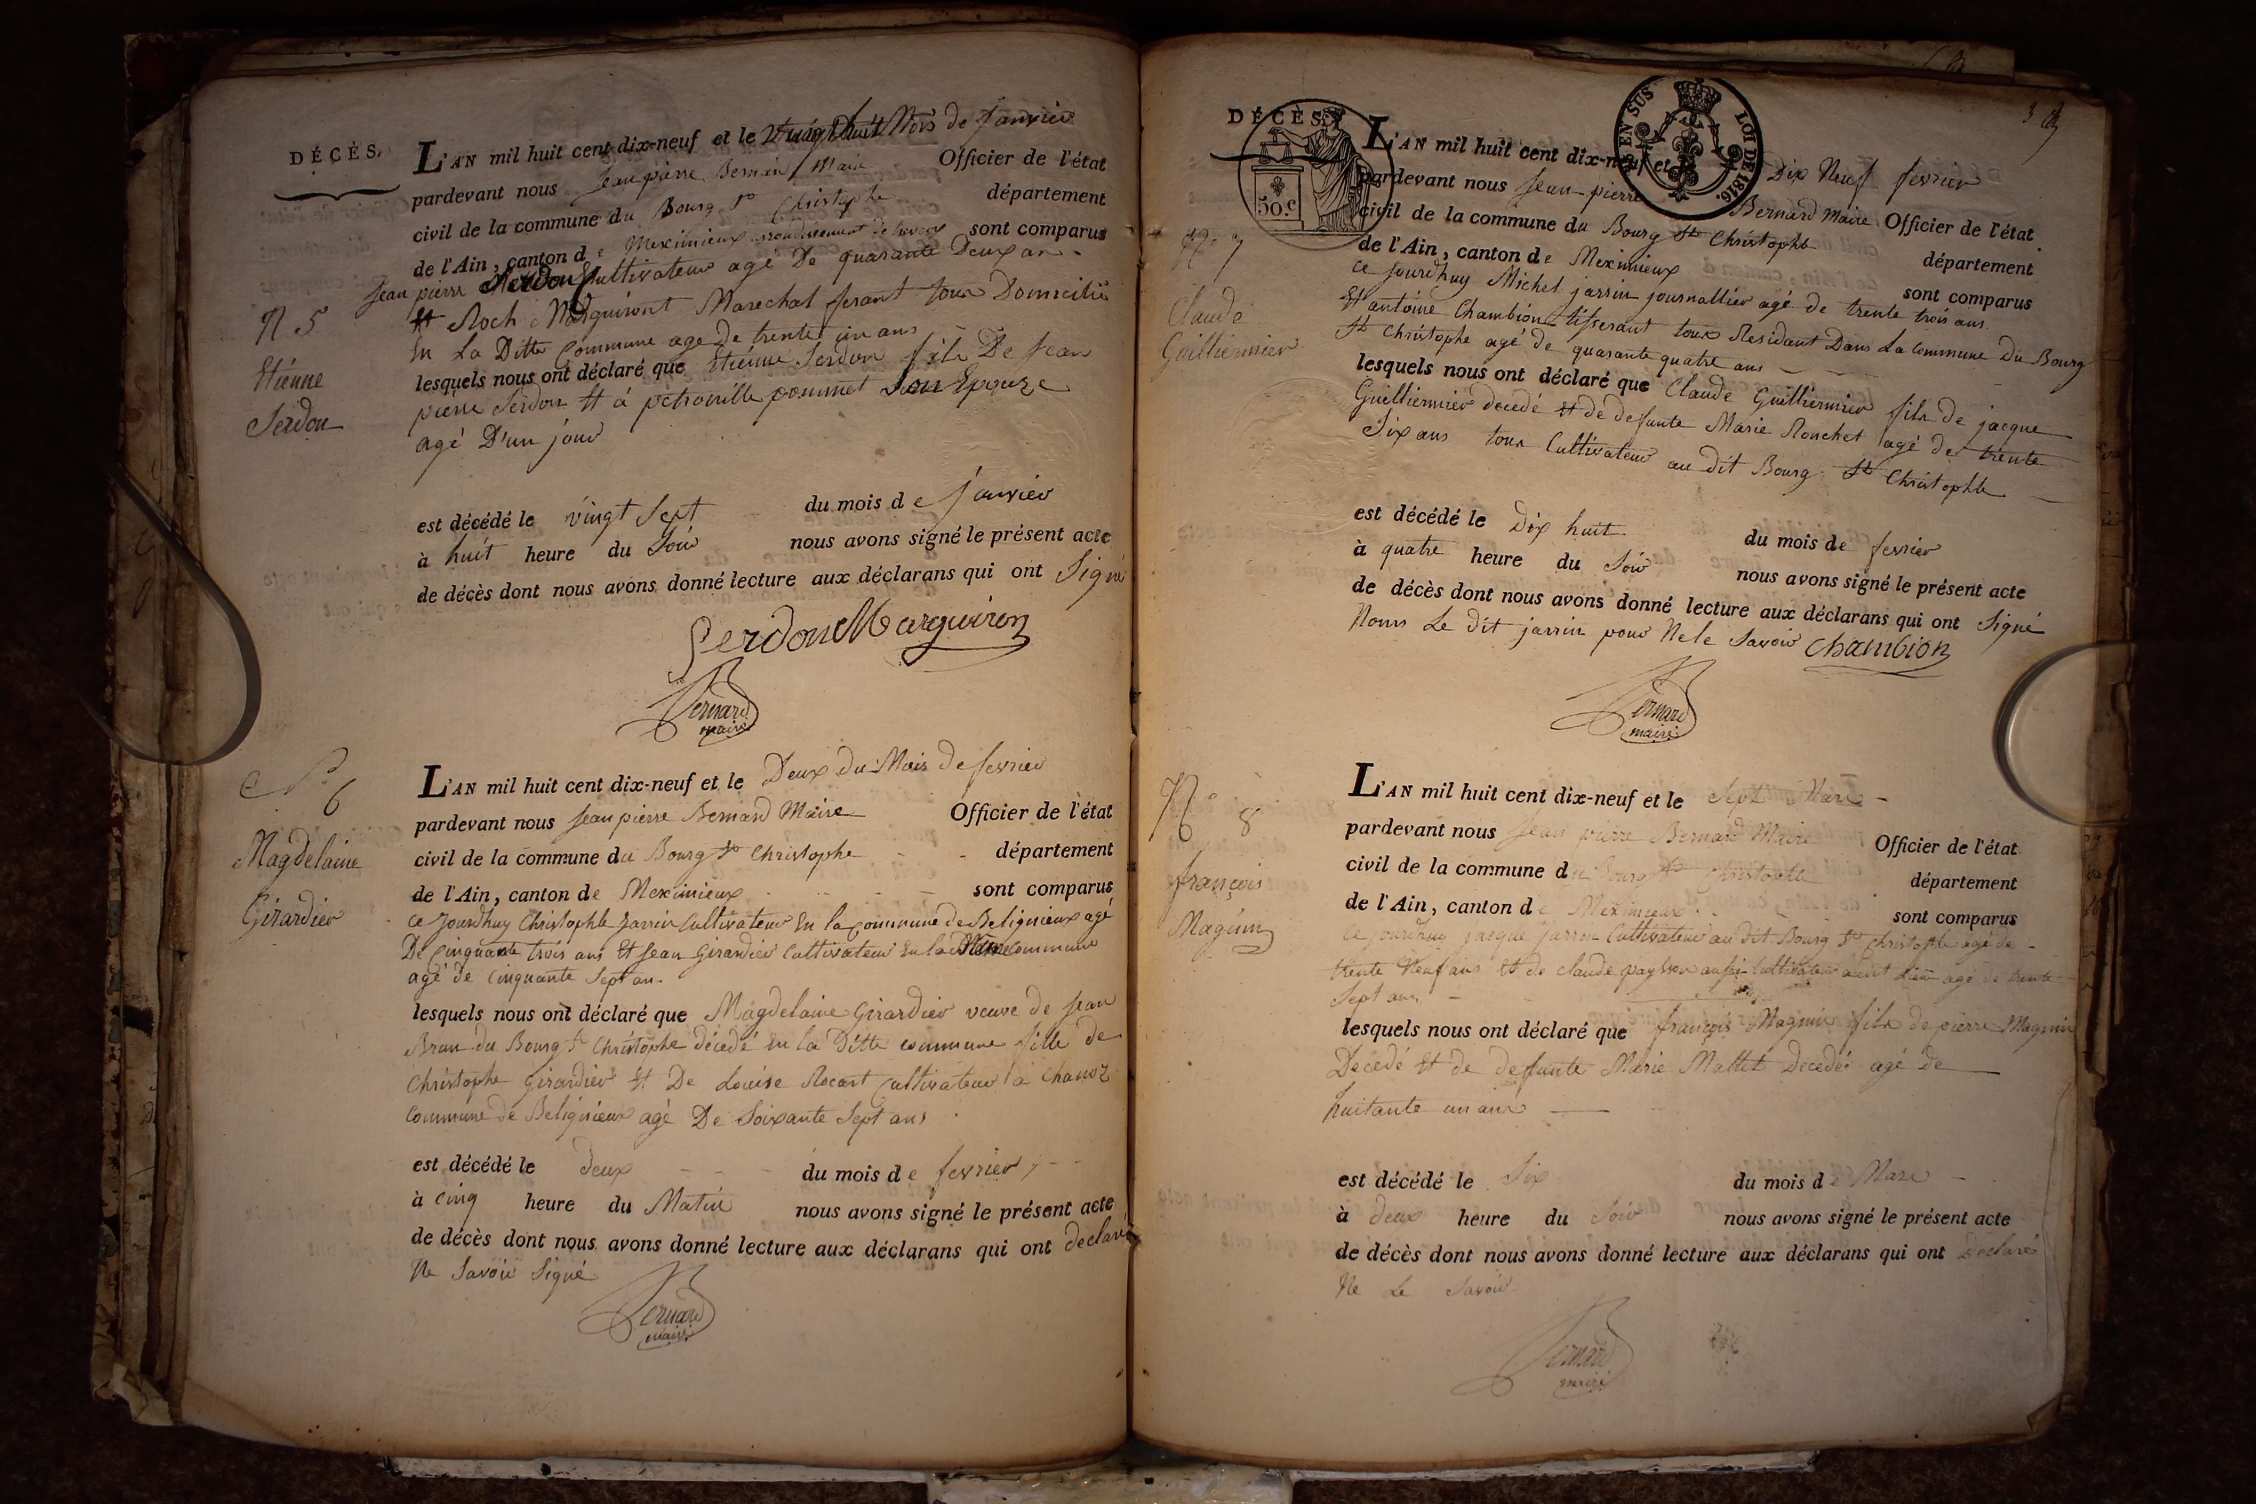 DÉCÈS.
L'AN mil huit cent dix-neuf et le Vingt huit Mois de Janvier
pardevant nous Jean pierre Bernard Maire Officier de l'état
civil de la commune du Bourg St Christophe département
de l'Ain, canton de Meximieux arrondissement de trevoux sont comparus
Jean pierre Serdon Cultivateur agé De quarante Deux an
Et Roch Marguiront Marechal ferant tous Domicilié
En La Ditte Commune agé de trente cin ans
lesquels nous ont déclaré que Etiénne Serdon fils De Jean
pierre Serdon Et á petronille pommet Son Epouze
agé D'un jour
N 5
Etiénne
Serdon
est décédé le vingt Sept du mois de janvier
à huit heure du Soir nous avons signé le présent acte
de décès dont nous avons donné lecture aux déclarans qui ont Signé
Serdon Marguiron
Bernard
maire
N° 6
Magdelaine
Girardier
L'AN mil huit cent dix-neuf et le Deux du Mois De fevrier
pardevant nous Jean pierre Bernard Maire Officier de l'état
civil de la commune du Bourg St Christophe département
de l'Ain, canton de Meximieux sont comparus
Ce Jourdhuy Christophle Jarrin Cultivateur En la Commune de Béligneux agé
De Cinquante trois ans Et Jean Girardier Cultivateur En la Commune
agé de Cinquante Sept an.
lesquels nous ont déclaré que Magdelaine Girardier veuve de Jean
Brun du Bourg St Christophe décedé En la Ditte commune fille de
Christophe Girardier Et De Louise Rocart Cultivateur á Chanoz
Commune de Beligneux agé De Soixante Sept ans
est décédé le deux du mois de fevrier
à Cinq heure du Matin nous avons signé le présent acte
de décès dont nous avons donné lecture aux déclarans qui ont declaré
Ne Savoir Signé
Bernard
maire
3
DÉCÈS.
50.c
EN SUS
LOI DE 1816.
L'AN mil huit cent dix-neuf et le Dix Neuf fevrier
pardevant nous Jean-pierre Bernard Maire Officier de l'état
civil de la commune du Bourg St Christophe département
de l'Ain, canton de Meximieux sont comparus
Ce Jourdhuy Michel jarrin journallier agé de trente trois ans
Et antoine Chambion tisserant tous Residant Dans La Commune Du Bourg
St Christophe agé de quarante quatre ans
lesquels nous ont déclaré que Claude Guilliermier fils de jacque
Guilliermier decedé Et de defunte Marie Ronchet agé de trente
Six ans tous Cultivateur au dit Bourg St Christophle
N° 7
Claude
Guilliermier
est décédé le Dix huit du mois de fevrier
à quatre heure du Soir nous avons signé le présent acte
de décès dont nous avons donné lecture aux déclarans qui ont Signé
Nons Le dit jarrin pour Ne le Savoir Chambion
Bernard
maire
N° 8
françois
Magnin
L'AN mil huit cent dix-neuf et le Sept Mars
pardevant nous Jean pierre Bernard Maire Officier de l'état
civil de la commune du Bourg St Christophe département
de l'Ain, canton de Meximieux sont comparus
Ce Jourdhuy jacque jarrin Cultivateur au dit Bourg St Christophe agé de
trente Neuf ans Et de Claude aussi Cultivateur audit Lieu agé de trente
Sept ans
lesquels nous ont déclaré que françois Magnin fils de pierre Magnin
Decedé Et de defunte Marie Mallet Decedé agé de
huitante un ans
est décédé le Six du mois de Mars
à deux heure du Soir nous avons signé le présent acte
de décès dont nous avons donné lecture aux déclarans qui ont Declaré
Ne Le Savoir
Bernard
maire